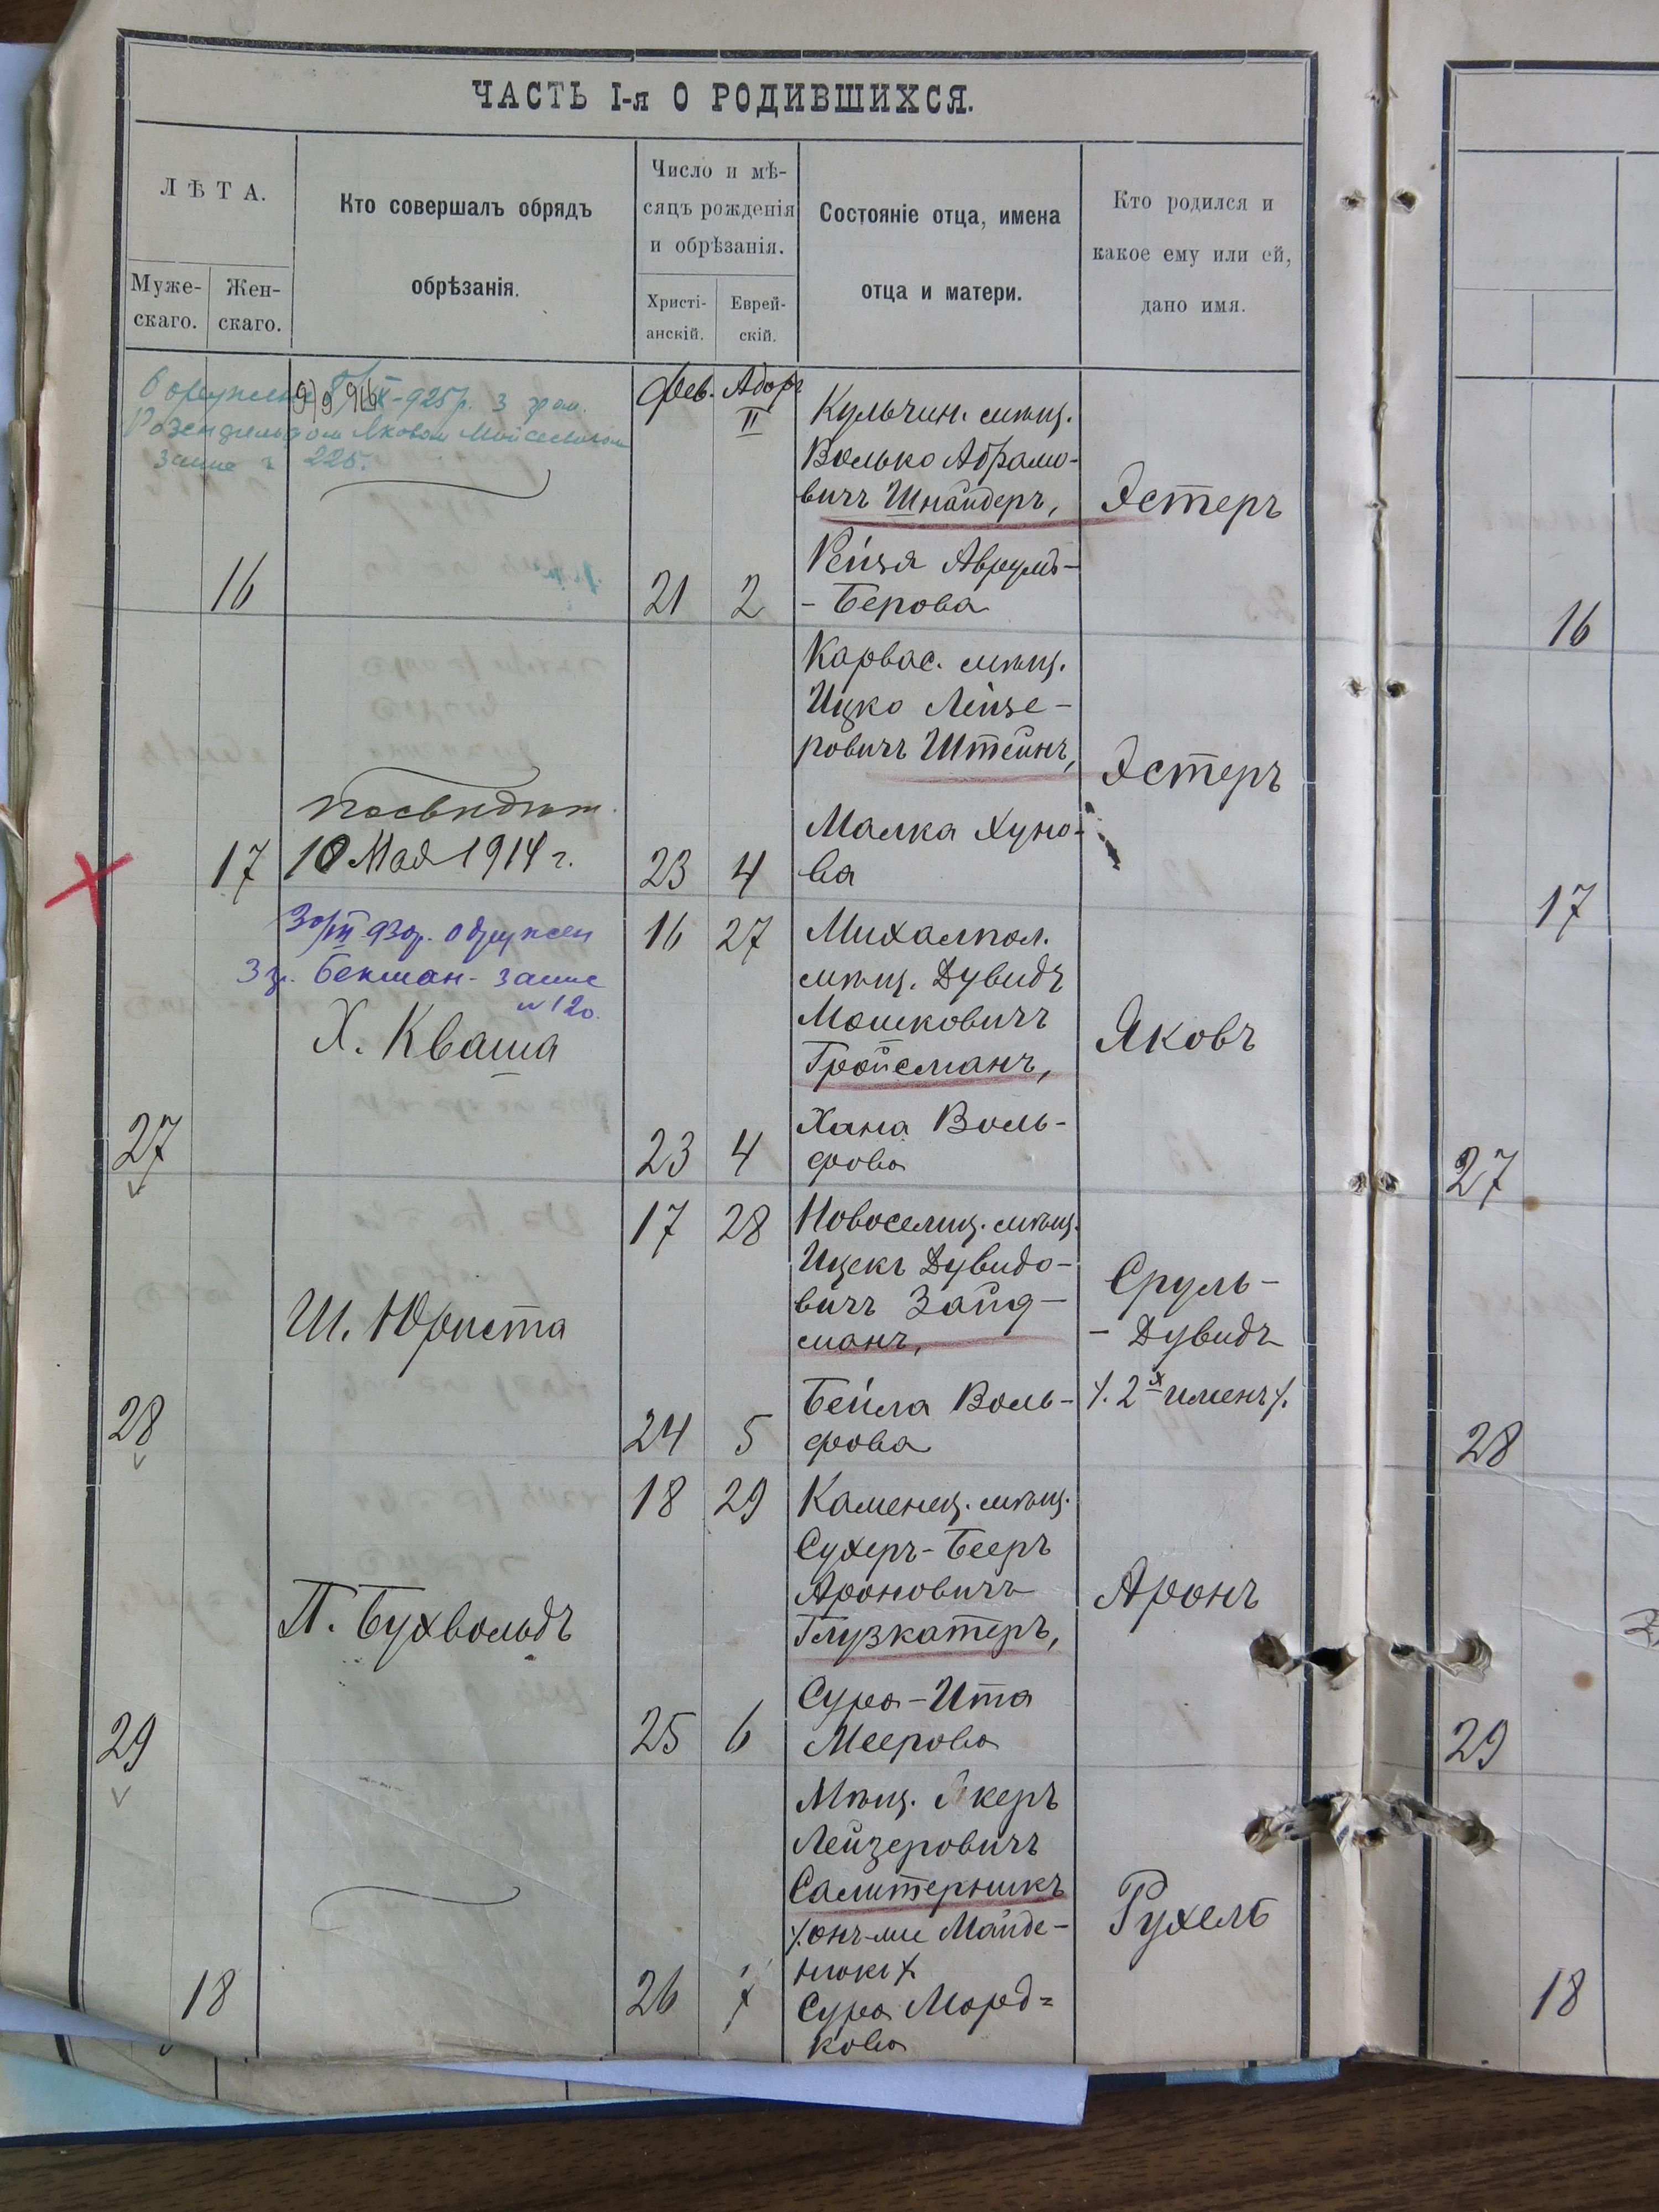 ЧАСТЬ I-я О РОДИВШИХСЯ.
ЛѢТА.
Муже-
скаго.
Жен-
скаго.
Кто совершалъ обрядъ
обрѣзанія.
Число и мѣ-
сяцъ рожденія
и обрѣзанія.
Христі-
анскій.
Еврей-
скій.
Состояніе отца, имена
отца и матери.
Кто родился и
какое ему или ей,
дано имя.
IX-925р. з гром.
Яковом Мойсеевичом
225.
Фев. Адоръ
II
16
21 2
Кульчин. мѣщ.
Волько Абрамо-
вичъ Шнайдеръ,
Рейзя Аврумъ-
- Берова
Эстеръ
16
17
10 Мая 1914 г.
23 4
Карвас. мѣщ.
Ицко Лейзе-
ровичъ Штейнъ,
Малка Хуно-
ва
Эстеръ
17
30/III 930р. одружен
з гр. Бекман - запис
№ 120.
Х. Кваша
27
16 27
23 4
Михалпол.
мѣщ. Дувидъ
Мошковичъ
Гройсманъ,
Хана Воль-
фова
Яковъ
27
Ш. Юриста
28
17 28
24 5
Новоселиц. мѣщ.
Ицекъ Дувидо-
вичъ Зайд-
манъ,
Бейла Воль-
фова
Сруль-
- Дувидъ
/. 2х именъ /.
28
П. Бухвольдъ
29
18 29
25 6
Каменец. мѣщ.
Сухеръ-Бееръ
Ароновичъ
Глузкатеръ,
Сура-Ита
Меерова
Аронъ
29
18
26 7
Мѣщ. керъ
Лейзеровичъ
Салитерникъ
/. онъ-же Майде-
нюкъ /.
Сура Морд=
кова
Рухель
18